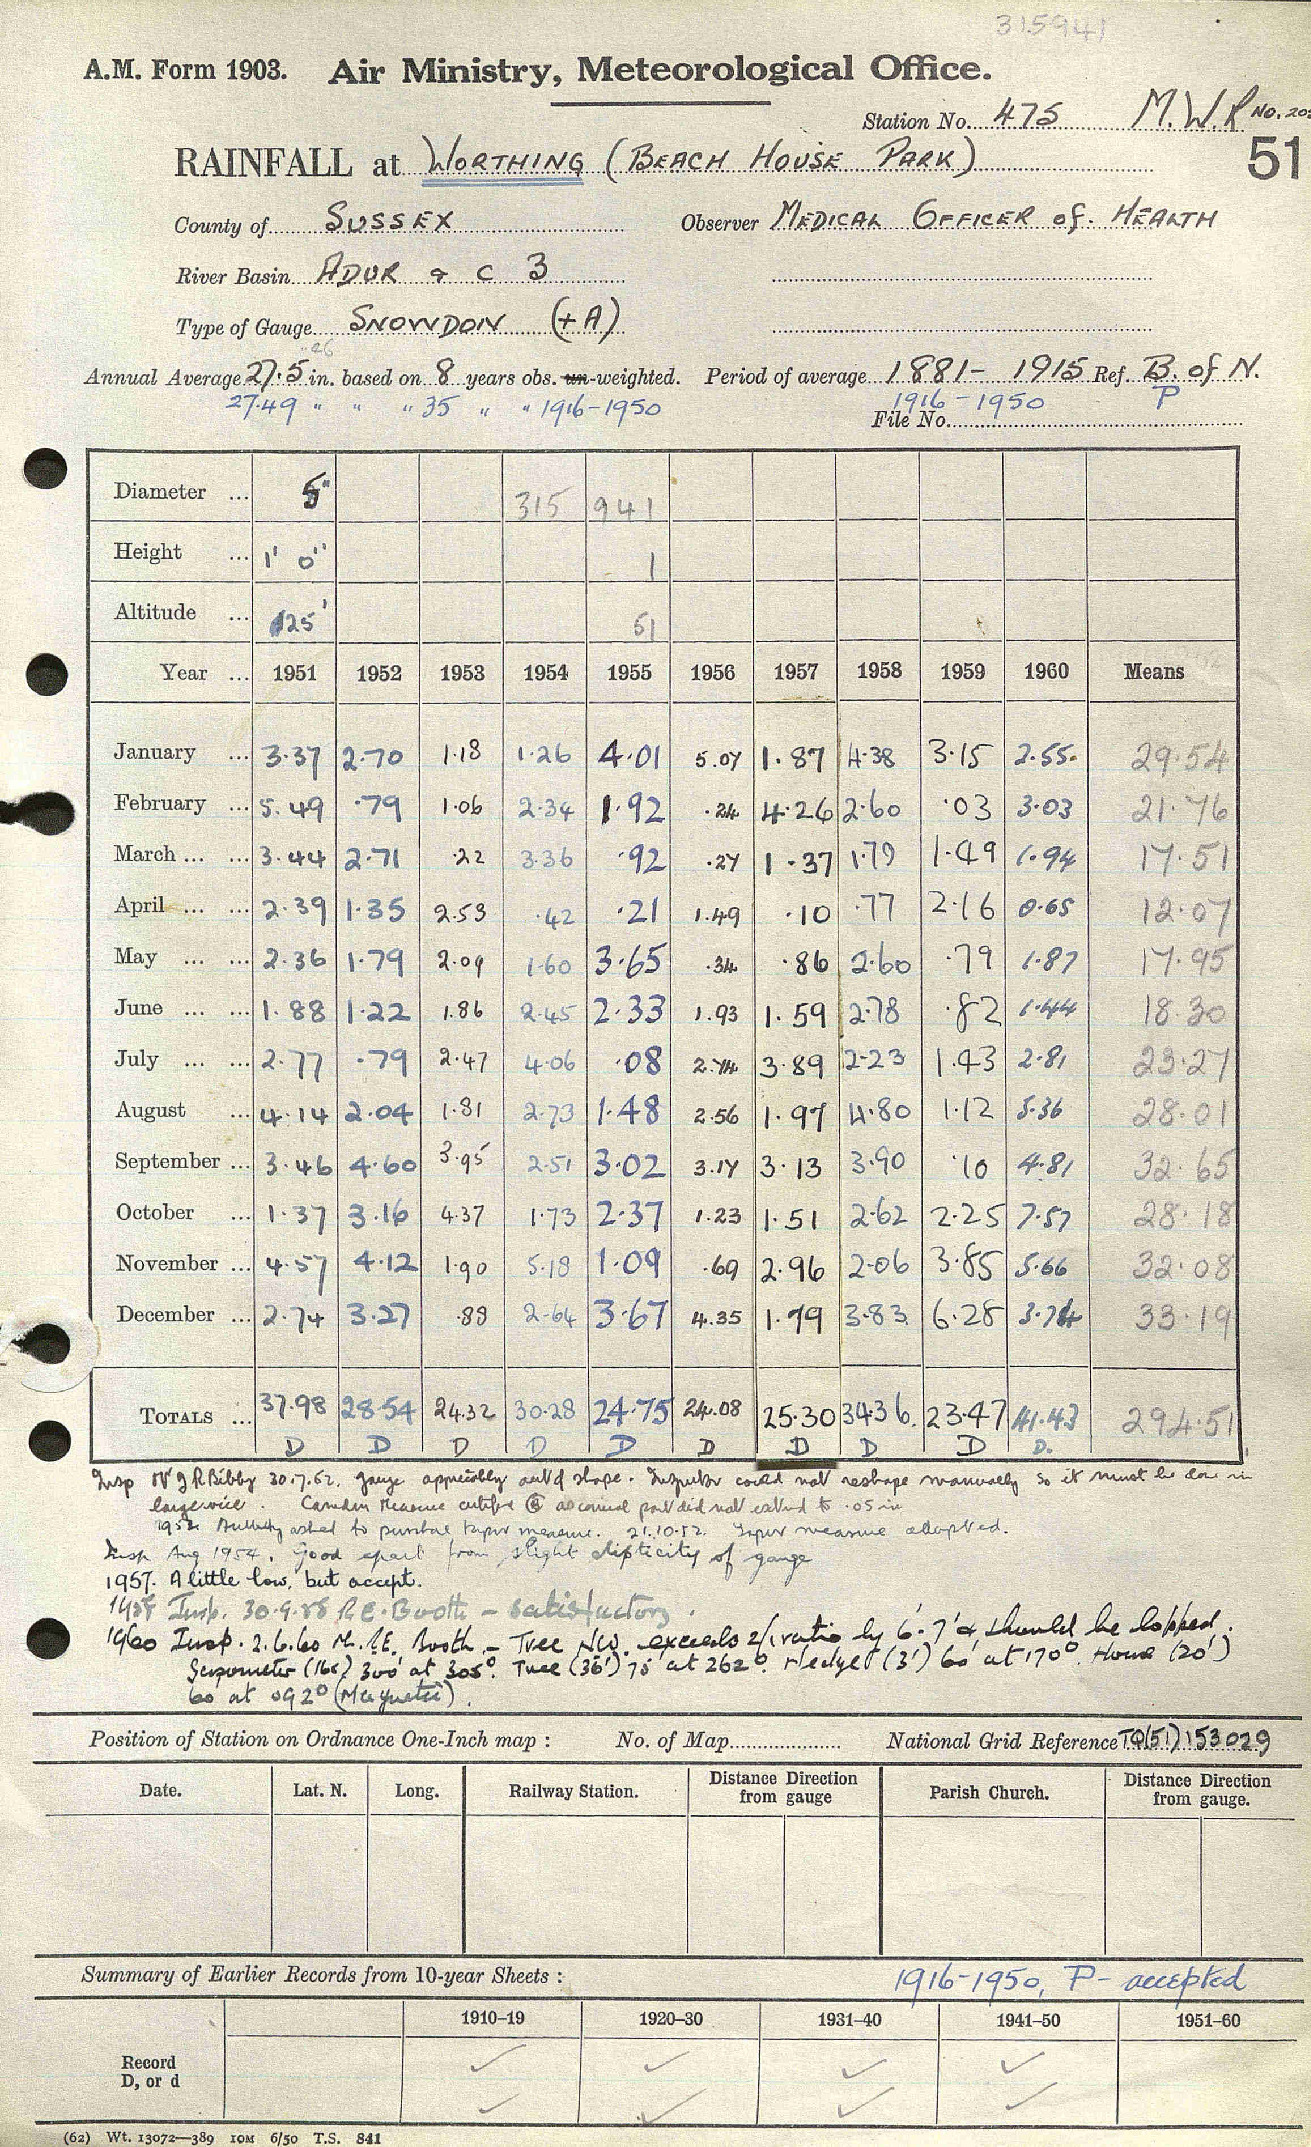 315941
A.M. Form 1903. Air Ministry, Meteorological Office.
Station No. 475 M.W.R No. 20
RAINFALL at WORTHING (BEACH HOUSE PARK) 51
County of SUSSEX Observer MEDICAL OFFICER of HEALTH
River Basin ADUR & C 3
Type of Gauge SNOWDON (+A)
Annual Average 27.5 in. based on 8 years obs. un-weighted. Period of average 1881- 1915 Ref. B. of N.
27.49 " " " 35 " " 1916-1950 1916-1950 P
File No.
Diameter ... 5" 315 941
Height ... 1' 0" 1
Altitude ... 25' 51
Year ... 1951 1952 1953 1954 1955 1956 1957 1958 1959 1960 Means
January ... 3.37 2.70 1.18 1.26 4.01 5.07 1.87 4.38 3.15 2.55 29.54
February ... 5.49 .79 1.06 2.34 1.92 .24 4.26 2.60 .03 3.03 21.76
March ... ... 3.44 2.71 .22 3.36 .92 .27 1.37 1.79 1.49 1.94 17.51
April ... ... 2.39 1.35 2.53 .42 .21 1.49 .10 .77 2.16 0.65 12.07
May ... ... 2.36 1.79 2.09 1.60 3.65 .34 .86 2.60 .79 1.87 17.95
June ... ... 1.88 1.22 1.86 2.45 2.33 1.93 1.59 2.78 .82 1.44 18.30
July ... ... 2.77 .79 2.47 4.06 .08 2.74 3.89 2.23 1.43 2.81 23.27
August ... 4.14 2.04 1.81 2.73 1.48 2.56 1.97 4.80 1.12 5.36 28.01
September ... 3.46 4.60 3.95 2.51 3.02 3.17 3.13 3.90 .10 4.81 32.65
October ... 1.37 3.16 4.37 1.73 2.37 1.23 1.51 2.62 2.25 7.57 28.18
November ... 4.57 4.12 1.90 5.18 1.09 .69 2.96 2.06 3.85 5.66 32.08
December ... 2.74 3.27 .88 2.64 3.67 4.35 1.79 3.83 6.28 3.74 33.19
TOTALS ... 37.98 28.54 24.32 30.28 24.75 24.08 25.30 34.36 23.47 41.43 294.51
D D D D D D D D D D.
Insp J R Bibby gauge appreciably out of shape. Inspector could not reshape manually so it must be done in
Camden Measure did not extend to .05 in
1952 asked to purchase taper measure. 21.10.52. Taper measure adopted.
Insp Aug 1954. Good apart from slight elipticity of gauge
1957. A little low, but accept.
Insp. 30.9.58 R.E. Booth - satisfactory.
1960 Insp. 2.6.60 Mr. R.E. Booth - Tree NW. exceeds 2/1 ratio by 6'-7' & should be lopped.
300' at 305°. Tree (36') 75' at 262°. Hedge (3') 60' at 170°. House (20')
60 at 092° (Magnetic).
Position of Station on Ordnance One-Inch map : No. of Map National Grid Reference TQ(51)153029
Date. Lat. N. Long. Railway Station. Distance Direction from gauge Parish Church. Distance Direction from gauge.
Summary of Earlier Records from 10-year Sheets : 1916-1950, P- accepted
1910–19 1920–30 1931–40 1941–50 1951–60
Record
D, or d
(62) Wt. 13072—389 10M 6/50 T.S. 841